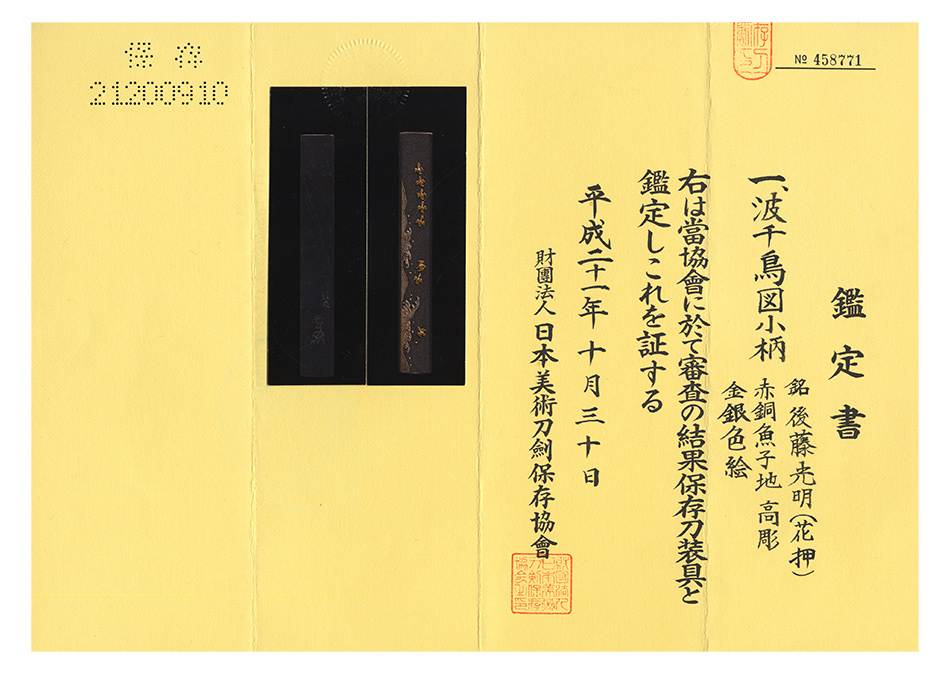 № 458771
鑑定書
一、波千鳥図小柄
銘 後藤光明(花押)
赤銅魚子地 高彫
金銀色絵
右は當協會に於て審査の結果保存刀装具と
鑑定しこれを証する
平成二十一年十月三十日
財團法人 日本美術刀劍保存協會
保存
21200910